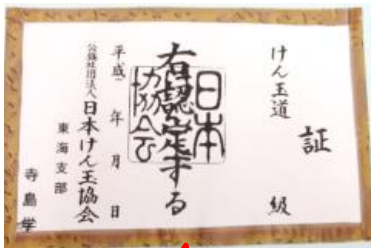 証
けん玉道 級
右認定する
日本
協会
平成 年 月 日
公益社団法人日本けん玉協会
東海支部
寺島学